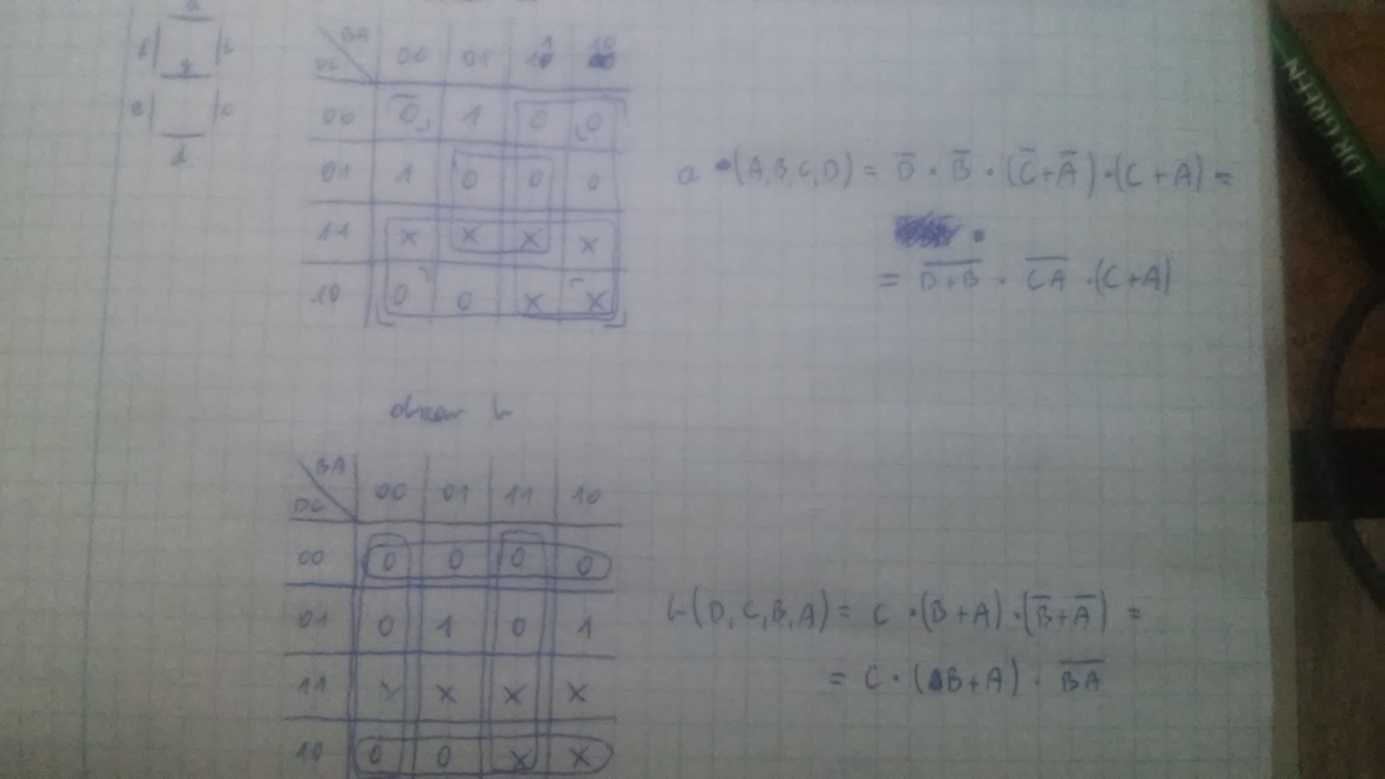 a
f b
g
e c
d
BA
DC 00 01 11 10
00 0 1 0 0
01 1 0 0 0
11 x x x x
10 0 0 x x
a (A,B,C,D) = D̅ · B̅ · (C̅+A̅) · (C + A) =
= \overline{D+B} · \overline{CA} · (C+A)
DR.GREEN
b
BA
DC 00 01 11 10
00 0 0 0 0
01 0 1 0 1
11 x x x x
10 0 0 x x
b(D,C,B,A) = C · (B+A) · (B̅+A̅) =
= C · (B+A) · \overline{BA}